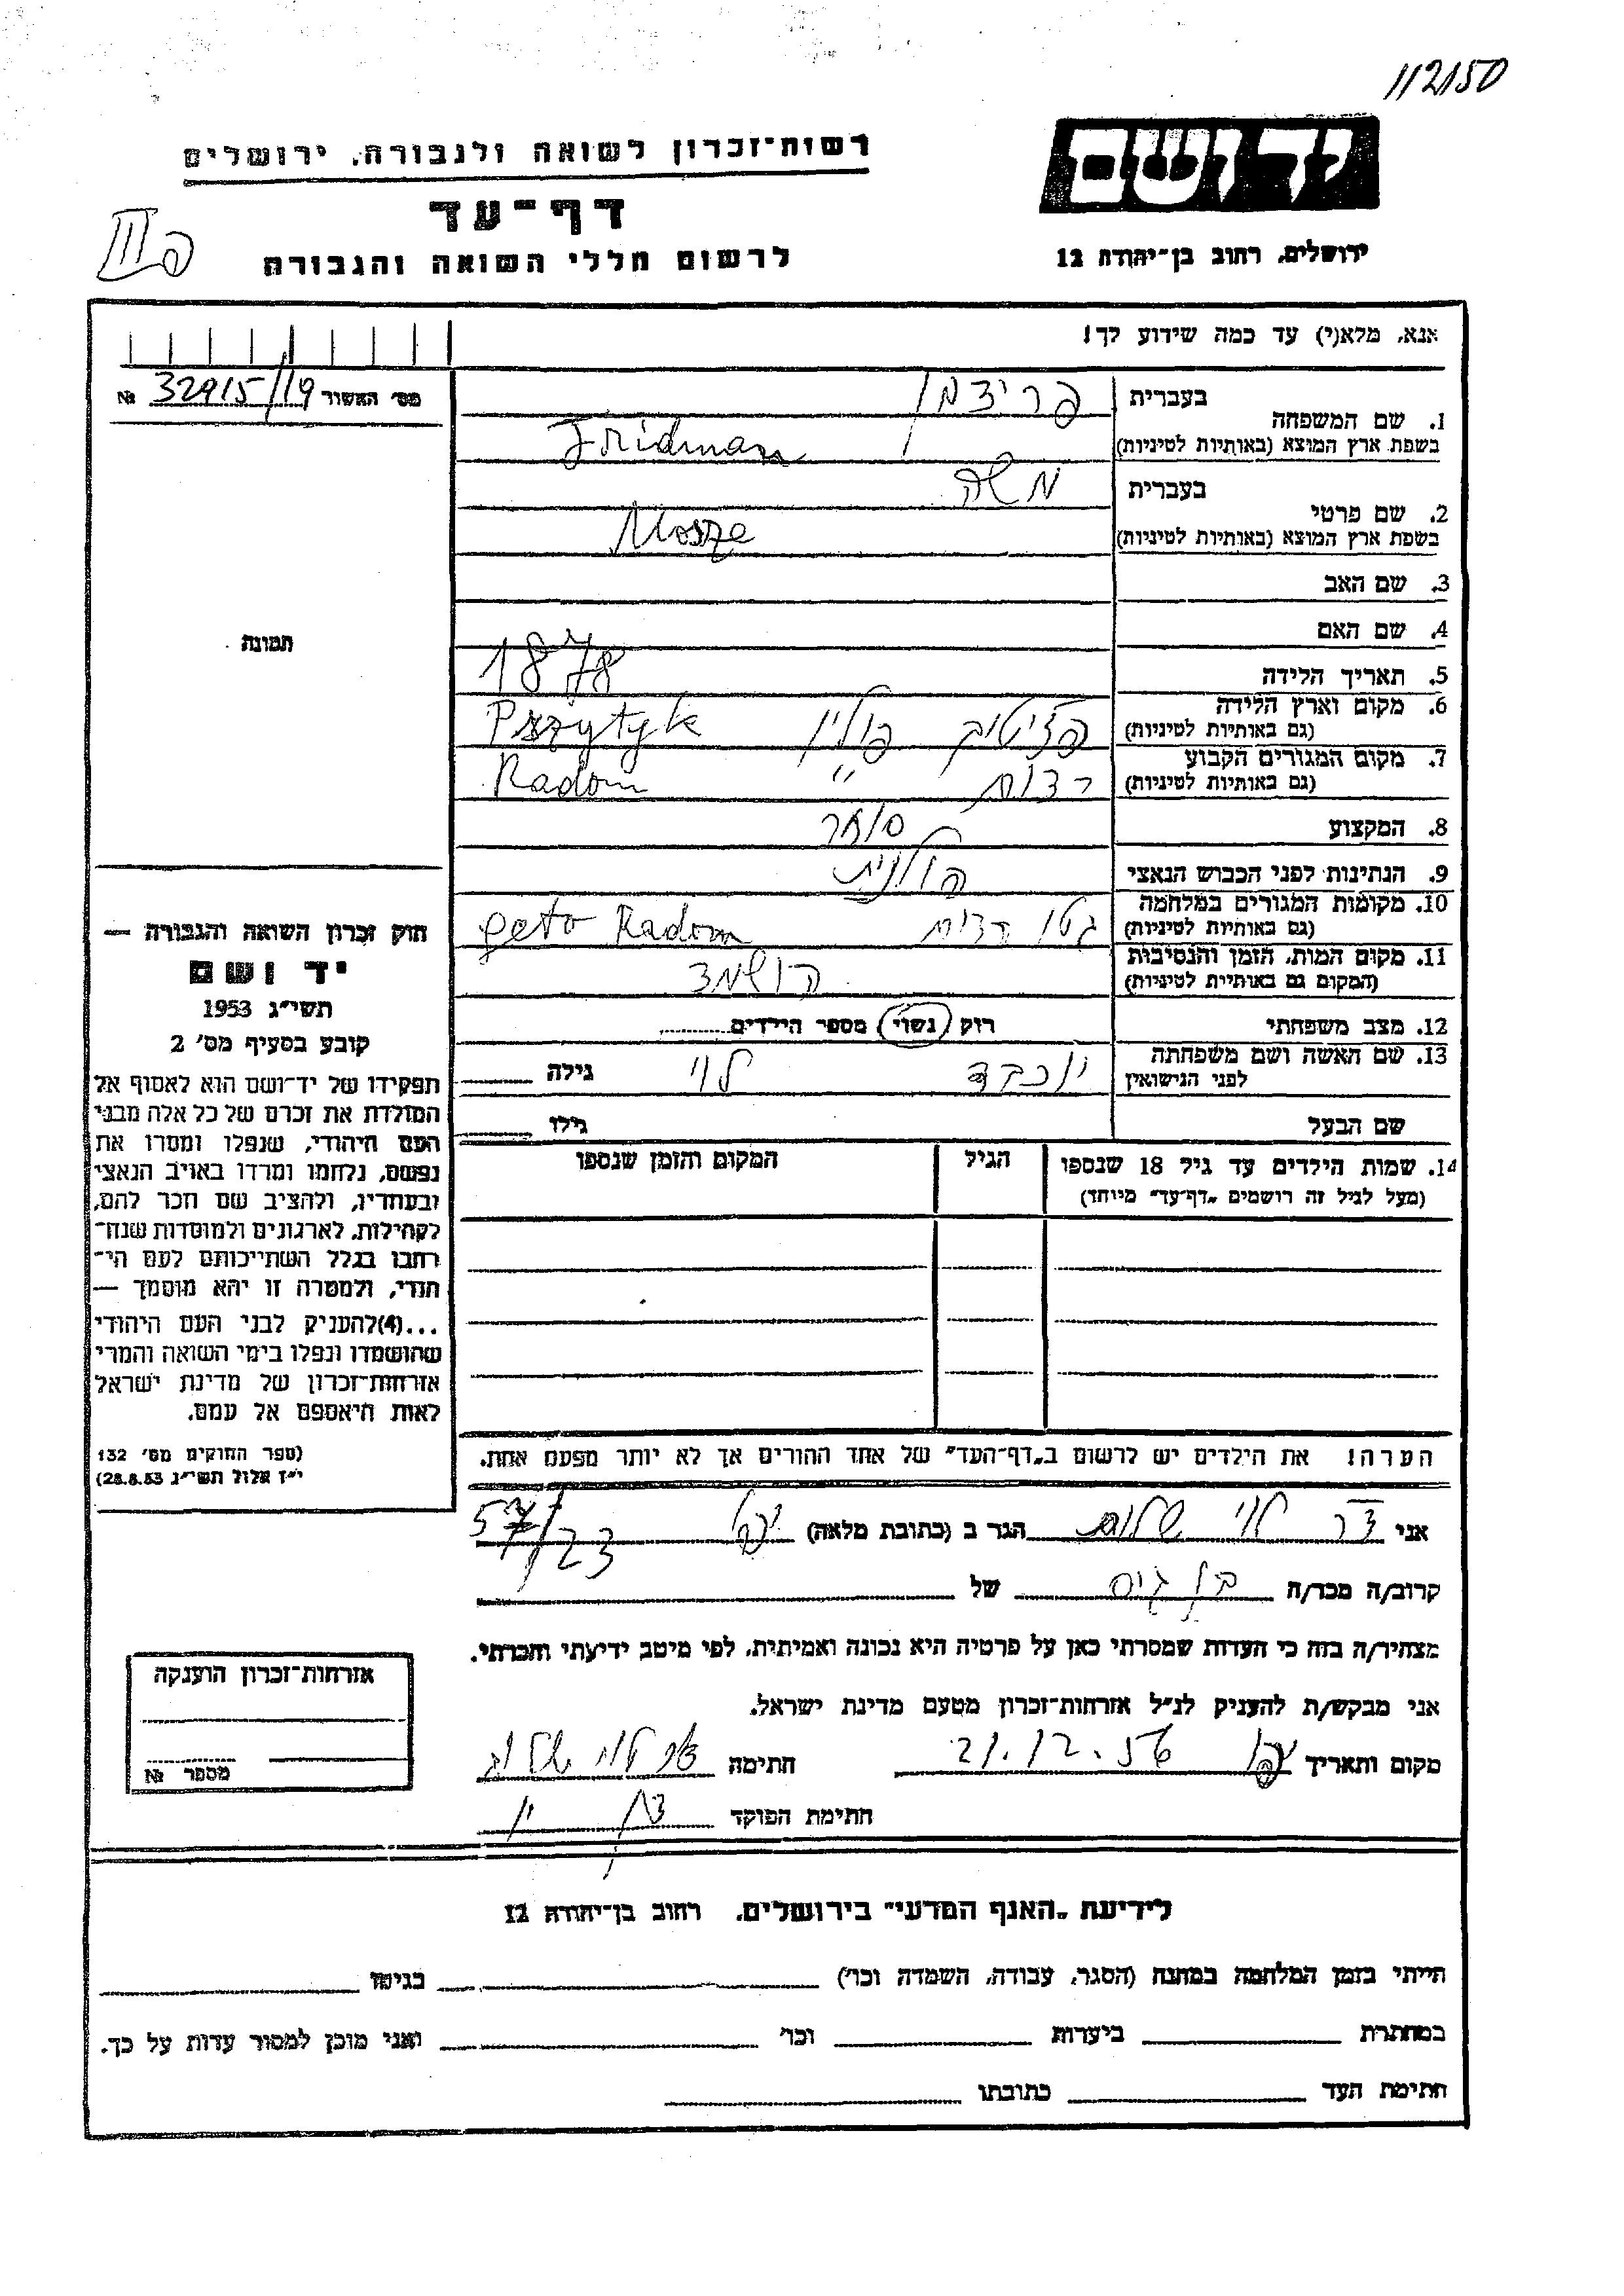 112150
רשות־זכרון לשואה ולגבורה, ירושלים
יד ושם
דף־עד
לרשום חללי השואה והגבורה
ירושלים, רחוב בן־יהודה 12
אנא, מלא(י) עד כמה שידוע לך!
מס' האשור 32915/19 №
1. שם המשפחה
בעברית פרידמן
בשפת ארץ המוצא (באותיות לטיניות) Fridman
2. שם פרטי
בעברית משה
בשפת ארץ המוצא (באותיות לטיניות) Mosze
3. שם האב
4. שם האם
תמונה
5. תאריך הלידה 1878
6. מקום וארץ הלידה
(גם באותיות לטיניות) פשיטיק פולין Przytyk
7. מקום המגורים הקבוע
(גם באותיות לטיניות) רדום " Radom
8. המקצוע סוחר
9. הנתינות לפני הכבוש הנאצי פולנית
10. מקומות המגורים במלחמה
(גם באותיות לטיניות) גטו רדום geto Radom
11. מקום המות, הזמן והנסיבות
(המקום גם באותיית לטיניות) הושמד
12. מצב משפחתי רווק נשוי מספר הילדים
13. שם האשה ושם משפחתה
לפני הנישואין יוכבד לוי גילה
שם הבעל גילו
14. שמות הילדים עד גיל 18 שנספו הגיל המקום והזמן שנספו
(מעל לגיל זה רושמים "דף־עד" מיוחד)
חוק זכרון השואה והגבורה —
יד ושם
תשי"ג 1953
קובע בסעיף מס' 2
תפקידו של יד־ושם הוא לאסוף אל
המולדת את זכרם של כל אלה מבני
העם היהודי, שנפלו ומסרו את
נפשם, נלחמו ומרדו באויב הנאצי
ובעוזריו, ולהציב שם וזכר להם,
לקהילות, לארגונים ולמוסדות שנח־
רבו בגלל השתייכותם לעם הי־
הודי, ולמטרה זו יהא מוסמך —
...(4)להעניק לבני העם היהודי
שהושמדו ונפלו בימי השואה והמרי
אזרחות־זכרון של מדינת ישראל
לאות היאספם אל עמם.
(ספר החוקים מס' 132
י"ז אלול תשי"ג 28.8.53)
הערה! את הילדים יש לרשום ב"דף־העד" של אחד ההורים אך לא יותר מפעם אחת.
אני דר לוי שלום הגר ב (כתובת מלאה) יפו 57/23
קרוב/ה מכר/ה בן גיס של
מצהיר/ה בזה כי העדות שמסרתי כאן על פרטיה היא נכונה ואמיתית, לפי מיטב ידיעתי והכרתי.
אני מבקש/ת להעניק לנ"ל אזרחות־זכרון מטעם מדינת ישראל.
מקום ותאריך יפו 21.12.56 חתימה דר לוי שלום
חתימת הפוקד
אזרחות־זכרון הוענקה
מספר №
לידיעת "האגף המדעי" בירושלים, רחוב בן־יהודה 12
הייתי בזמן המלחמה במחנה (הסגר, עבודה, השמדה וכו') בגיטו
במחתרת ביערות וכו' ואני מוכן למסור עדות על כך.
חתימת העד כתובתו